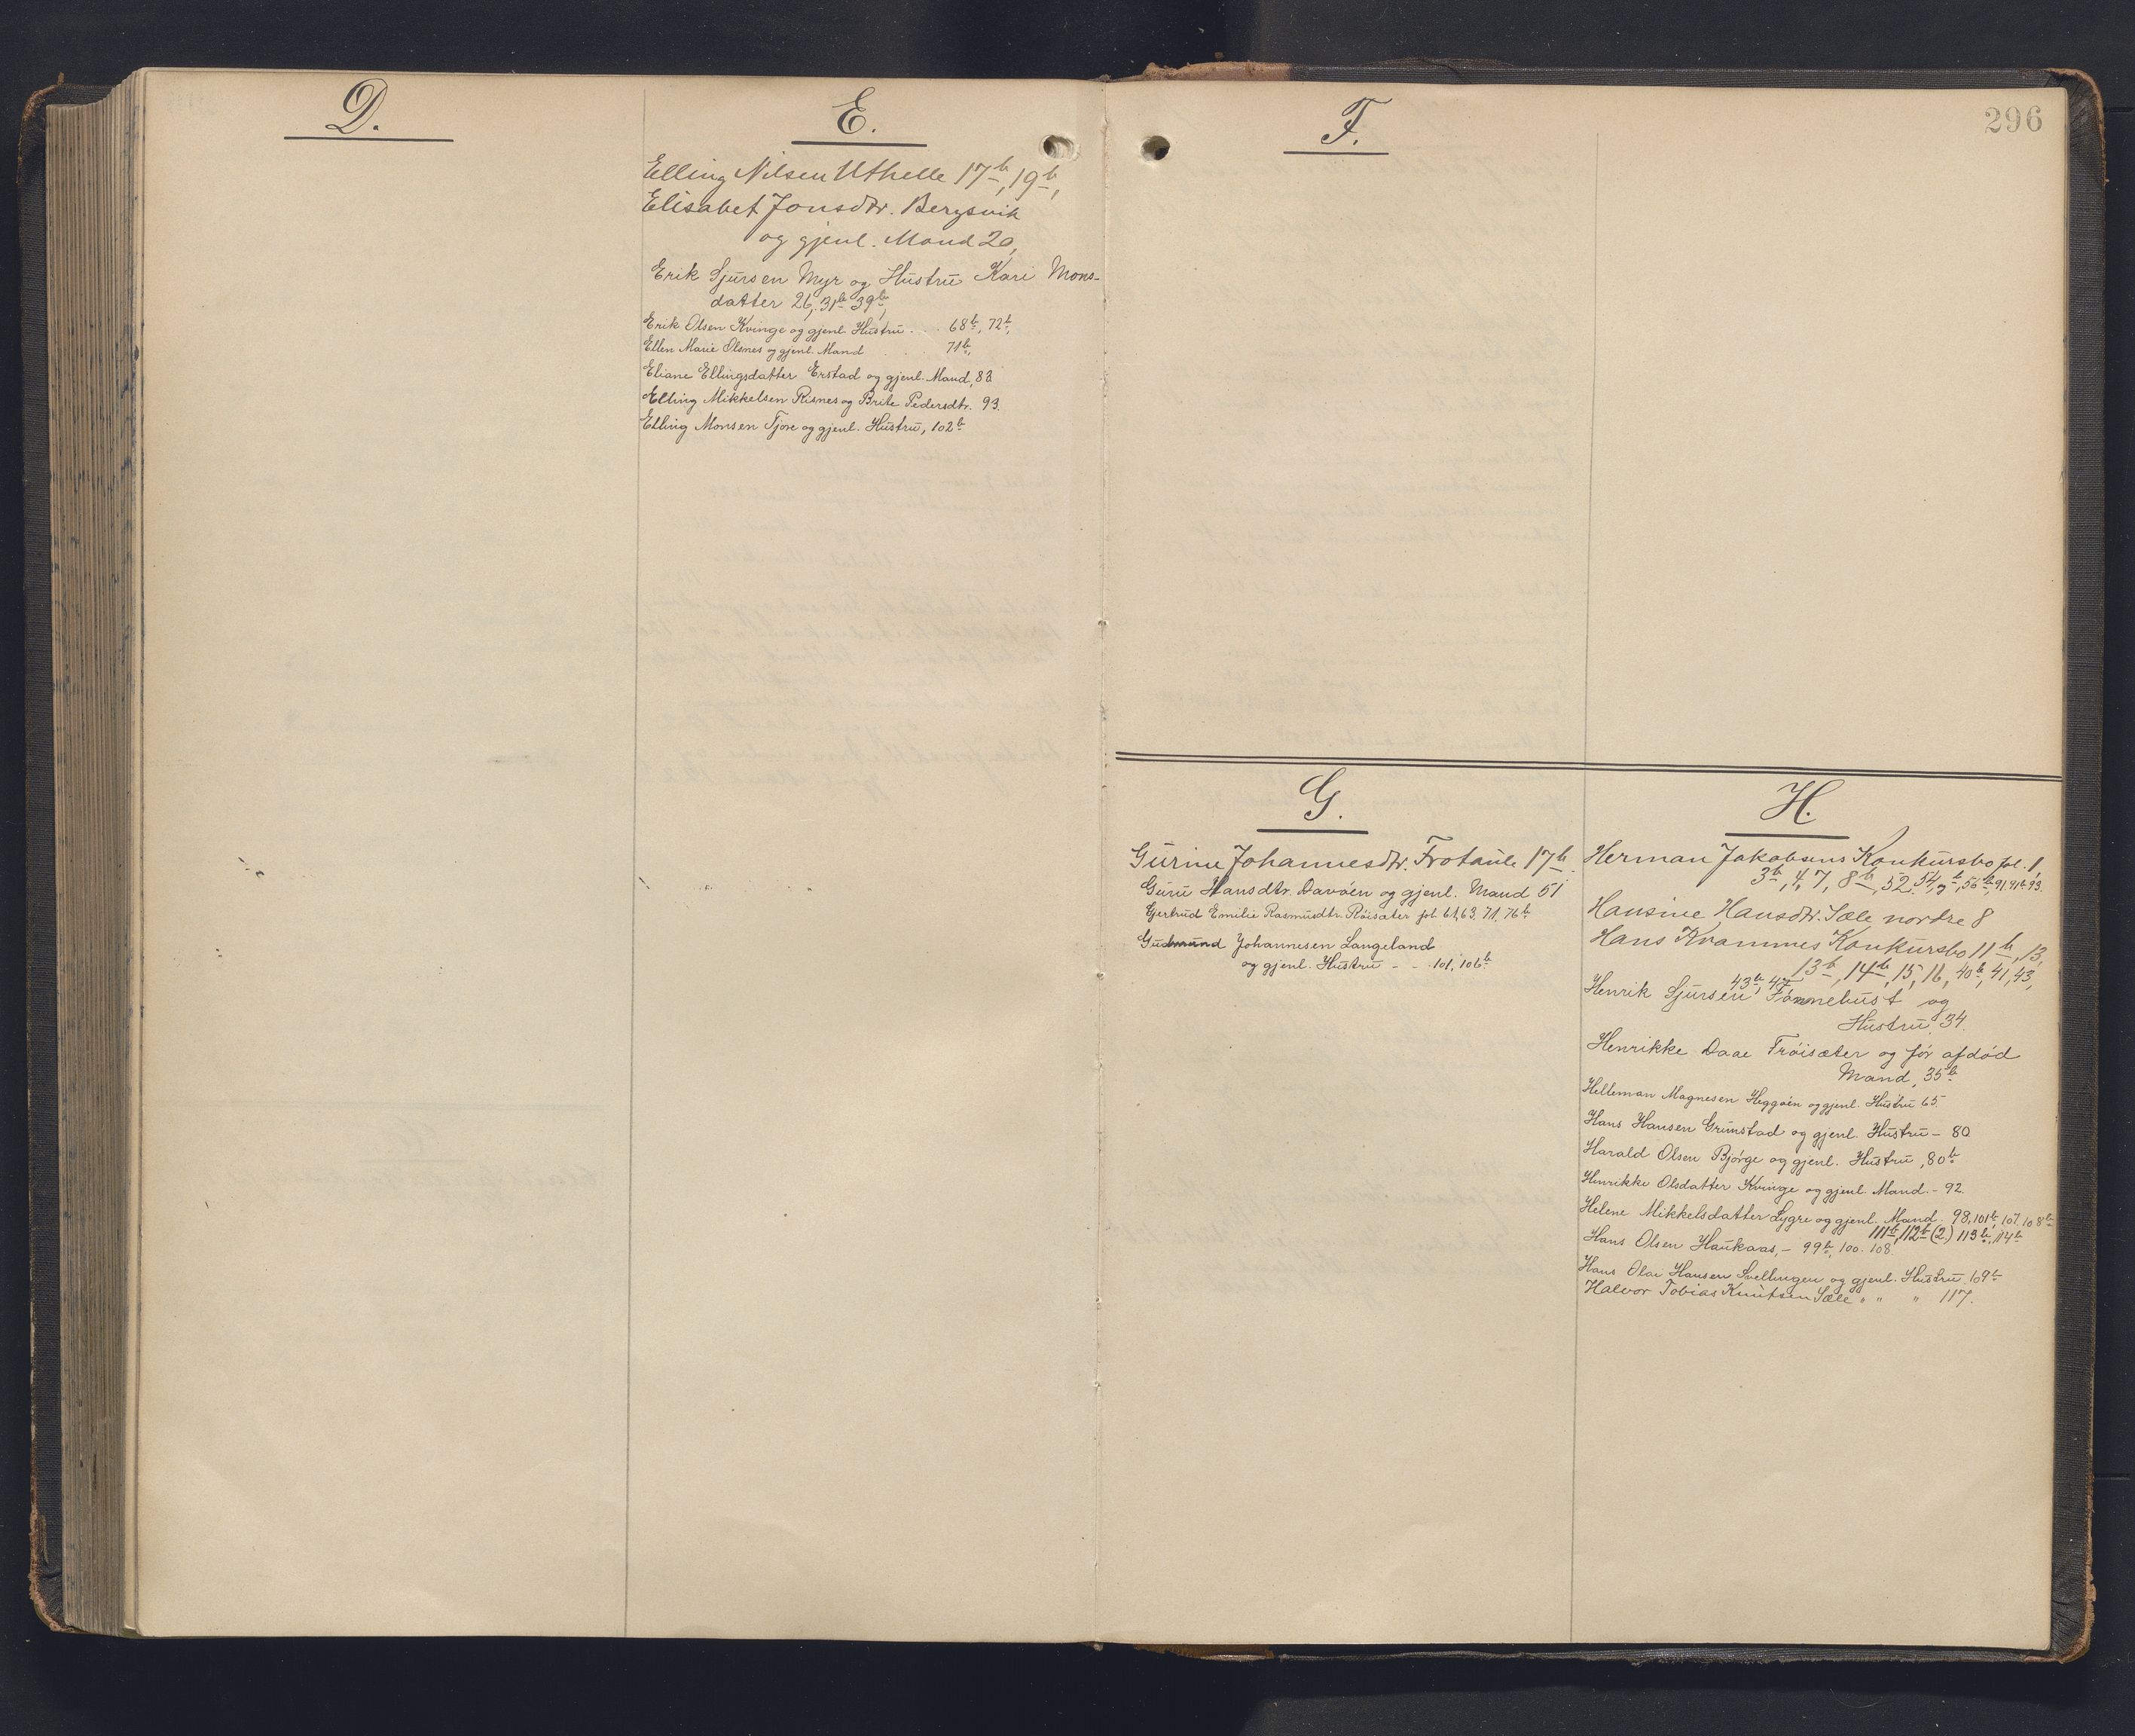 D.
E.
Elling Nilsen Uthelle 17b, 19b,
Elisabet Jonsdtr. Bergsvik
og gjenl. Mand 20,
Erik Sjursen Myr og Hustru Kari Mons-
datter 26, 31b 39b,
Erik Olsen Kvinge og gjenl Hustru . . . 68b, 72b,
Ellen Marie Olsnes og gjenl. Mand . . . 71b,
Eliane Ellingsdatter Erstad og gjenl. Mand, 83
Elling Mikkelsen Risnes og Brite Pedersdtr. 93.
Elling Monsen Tjore og gjenl. Hustru, 102b
F.
296
G.
Gurine Johannesdtr. Frotaule 17b.
Guru Hansdtr. Davøen og gjenl. Mand 51
Gjertrud Emilie Rasmusdtr. Røisæter fol. 61, 63, 71, 76b
Gudmund Johannesen Langeland
og gjenl. Hustru - - 101, 106b
H.
Herman Jakobsens Konkursbo fol. 1,
3b, 4, 7, 8b, 52, 54, 91, 91b, 93.
Hansine Hansdtr. Sæle nordre 8
Hans Kvammes Konkursbo 11b, 13,
13b, 14b, 15, 16, 40b, 41, 43,
43b, 47
Henrik Sjursen Fonnebust og
Hustru, 34.
Henrikke Daae Frøisæter og før afdød
Mand, 35b
Helleman Magnesen Heggøen og gjenl. Hustru 65.
Hans Hansen Grimstad og gjenl. Hustru - 80
Harald Olsen Bjørge og gjenl. Hustru, 80b
Henrikke Olsdatter Kvinge og gjenl. Mand. - 92.
Helene Mikkelsdatter Lygre og gjenl. Mand. 98, 101b, 107, 108b
111b, 112b (2) 113b, 114b
Hans Olsen Haukaas, - 99b, 100. 108.
Hans Olai Hansen Svellingen og gjenl. Hustru 109b
Halvor Tobias Knutsen Sæle " " " 117.